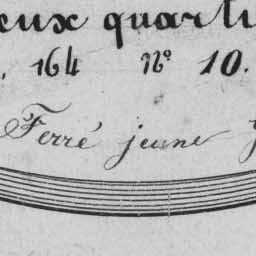 eux quarti
. 164 N° 10.
Ferré jeune